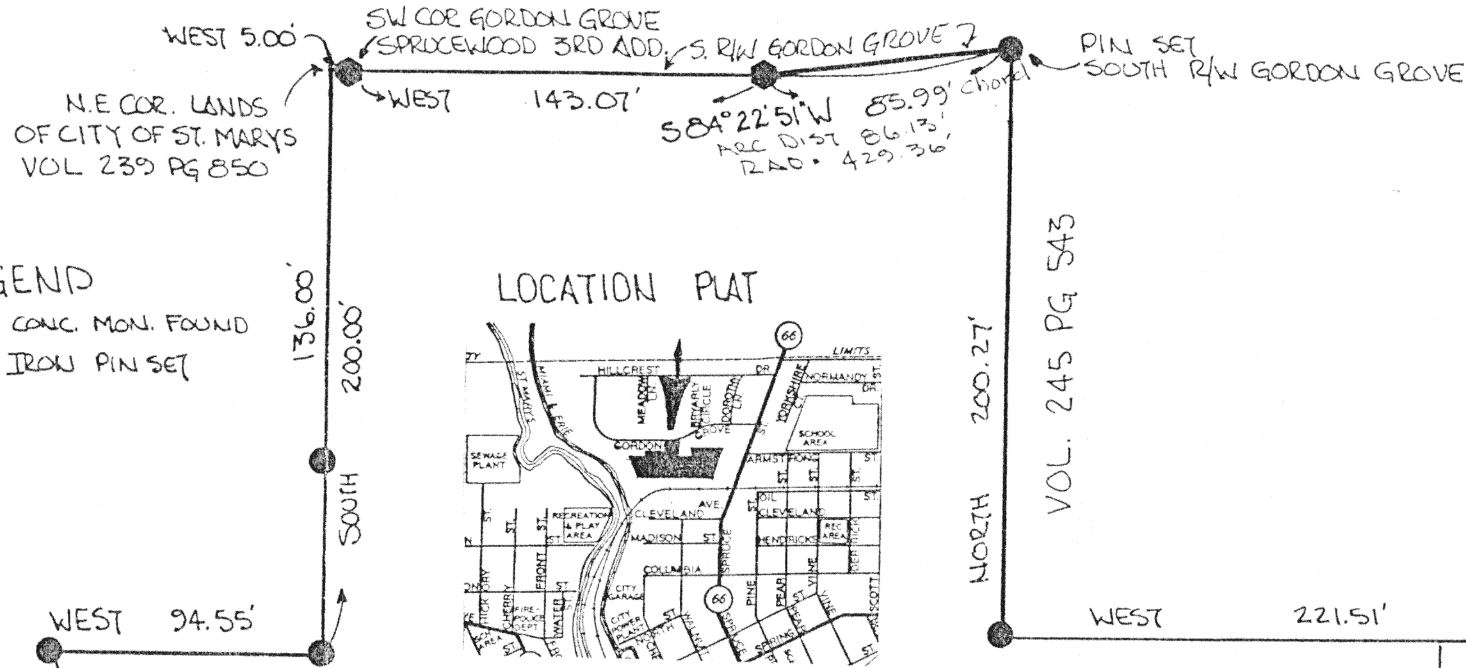 WEST 5.00'
SW COR GORDON GROVE
SPRUCEWOOD 3RD ADD.
S. R/W GORDON GROVE
PIN SET
SOUTH R/W GORDON GROVE
N.E COR. LANDS
OF CITY OF ST. MARYS
VOL 239 PG 850
WEST 143.07'
S 84° 22' 51" W 85.99' Chord
ARC DIST 86.13'
RAD. 429.36'
GEND
CONC. MON. FOUND
IRON PIN SET
136.00'
200.00'
SOUTH
LOCATION PLAT
66
LIMITS
HILLCREST DR.
NORMANDY DR.
ST.
MEADOW LN
CIRCLE
DOROTHY LN
YORKSHIRE
ST. MARYS
MIAMI & ERIE
GORDON GROVE
ST.
SCHOOL AREA
SEWAGE PLANT
ARMSTRONG ST.
OIL ST.
CLEVELAND AVE
CLEVELAND
RECREATION & PLAY AREA
MADISON ST.
HENDRICKS
REC AREA
COLUMBIA
SPRUCE
HICKORY
CHERRY
FRONT ST.
WATER
FIRE-POLICE DEPT
CITY GARAGE
CITY POWER PLANT
PINE
PEAR
VINE
SPRING
66
NORTH
200.27'
VOL. 245 PG 543
WEST 94.55'
WEST 221.51'